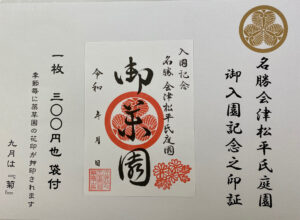 名勝会津松平氏庭園
御入園記念之印証
入園記念
名勝会津松平氏庭園
御薬園
令和 年 月 日
一枚 三〇〇円也 袋付
季節毎に薬草園の花印が押印されます
九月は『菊』